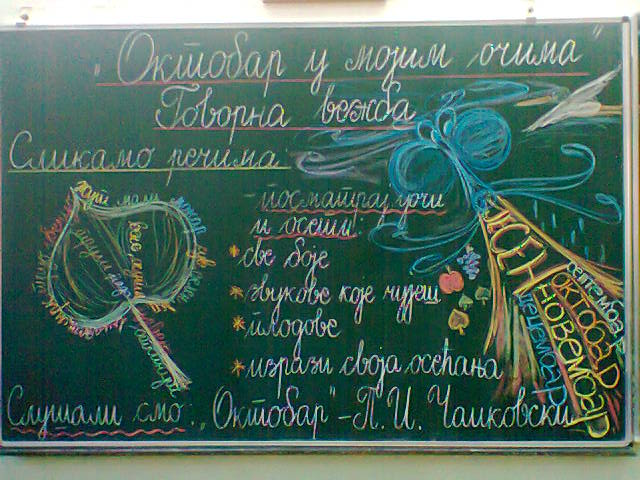 „Октобар у мојим очима"
Говорна вежба
Сликамо речима:
- посматрај, учи
и осети:
* све боје
* звукове које чујеш
* плодове
* изрази своја осећања
ЈЕСЕН
септембар
октобар
новембар
децембар
Слушали смо: „Октобар" - П. И. Чаиковски